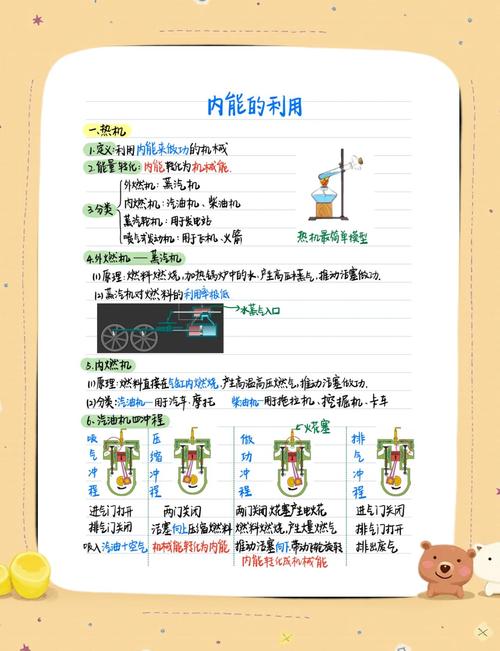 内能的利用
一.热机
1.定义:利用内能来做功的机械
2.能量转化:内能转化为机械能.
3.分类
外燃机:蒸汽机
内燃机:汽油机、柴油机
蒸汽轮机:用于发电站
喷气式发动机:用于飞机、火箭
热机最简单模型
4.外燃机——蒸汽机
(1)原理:燃料燃烧,加热锅炉中的水,产生高压蒸气,推动活塞做功.
(2)蒸汽机对燃料的利用率极低
水蒸气入口
5.内燃机
(1)原理:燃料直接在气缸内燃烧,产生高温高压燃气,推动活塞做功.
(2)分类:汽油机—用于汽车.摩托 柴油机—用于拖拉机、挖掘机、卡车
6、汽油机四冲程
吸气冲程
进气门打开
排气门关闭
吸入汽油+空气
压缩冲程
两门关闭
活塞向上压缩燃料
机械能转化为内能
做功冲程
火花塞
两门关闭 火花塞产生火花
燃料燃烧,产生大量燃气
推动活塞向下.带动飞轮旋转
内能转化成机械能
排气冲程
进气门关闭
排气门打开
排出废气